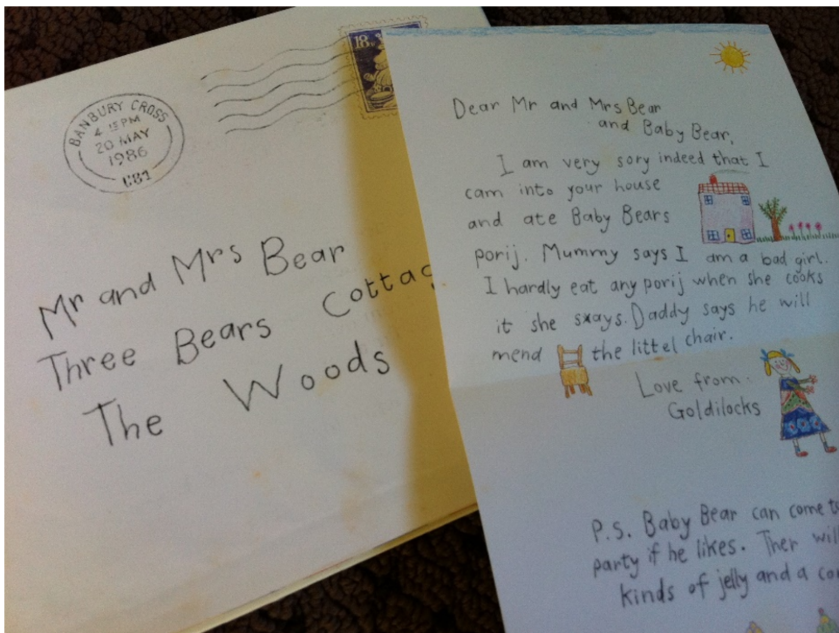 BANBURY CROSS
4 15 PM
20 MAY
1986
C81
18
Mr and Mrs Bear
Three Bears
The Woods
Dear Mr and Mrs Bear
and Baby Bear,
I am very sory indeed that I
cam into your house
and ate Baby Bears
porij. Mummy says I am a bad girl.
I hardly eat any porij when she cooks
it she says. Daddy says he will
mend the littel chair.
Love from
Goldilocks
P.S. Baby Bear can come to
party if he likes. Ther
kinds of jelly and a